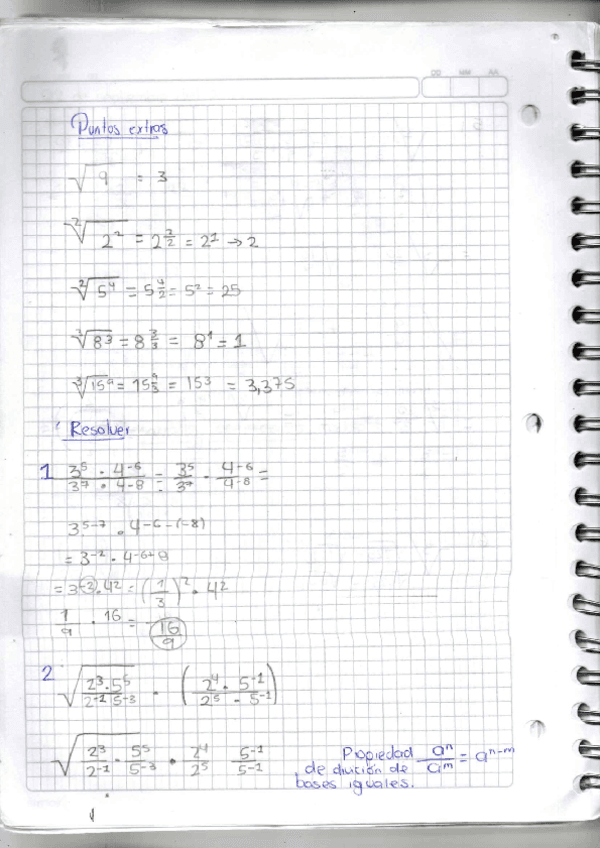 DD MM AA
Puntos extras
√9 = 3
²√2² = 2^(2/2) = 2¹ → 2
²√5⁴ = 5^(4/2) = 5² = 25
³√8³ = 8^(3/3) = 8¹ = 1
³√15⁹ = 15^(9/3) = 15³ = 3,375
Resolver
1 (3⁵ · 4⁻⁶)/(3⁷ · 4⁻⁸) = 3⁵/3⁷ · 4⁻⁶/4⁻⁸ =
3⁵⁻⁷ · 4^(-6-(-8))
= 3⁻² · 4⁻⁶⁺⁸
= 3⁻² · 4² = (1/3)² · 4²
1/9 · 16 = 16/9
2 √((2³ · 5⁵)/(2⁻¹ 5⁻³)) · ((2⁴ · 5⁻¹)/(2⁵ - 5⁻¹))
√(2³/2⁻¹ · 5⁵/5⁻³) · 2⁴/2⁵ 5⁻¹/5⁻¹
Propiedad aⁿ/aᵐ = aⁿ⁻ᵐ
de divición de
bases iguales.